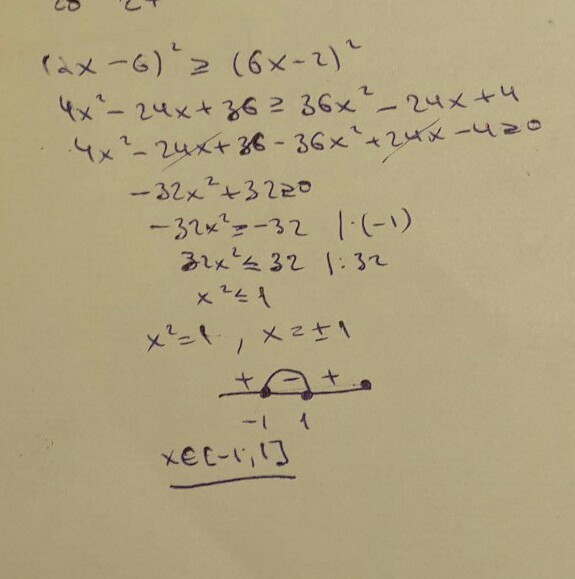 (2x-6)² ≥ (6x-2)²
4x²-24x+36 ≥ 36x²-24x+4
4x²-24x+36-36x²+24x-4≥0
-32x²+32≥0
-32x²≥-32 |·(-1)
32x²≤32 |:32
x²≤1
x²=1, x=±1
+ - +
-1 1
x∈[-1,1]